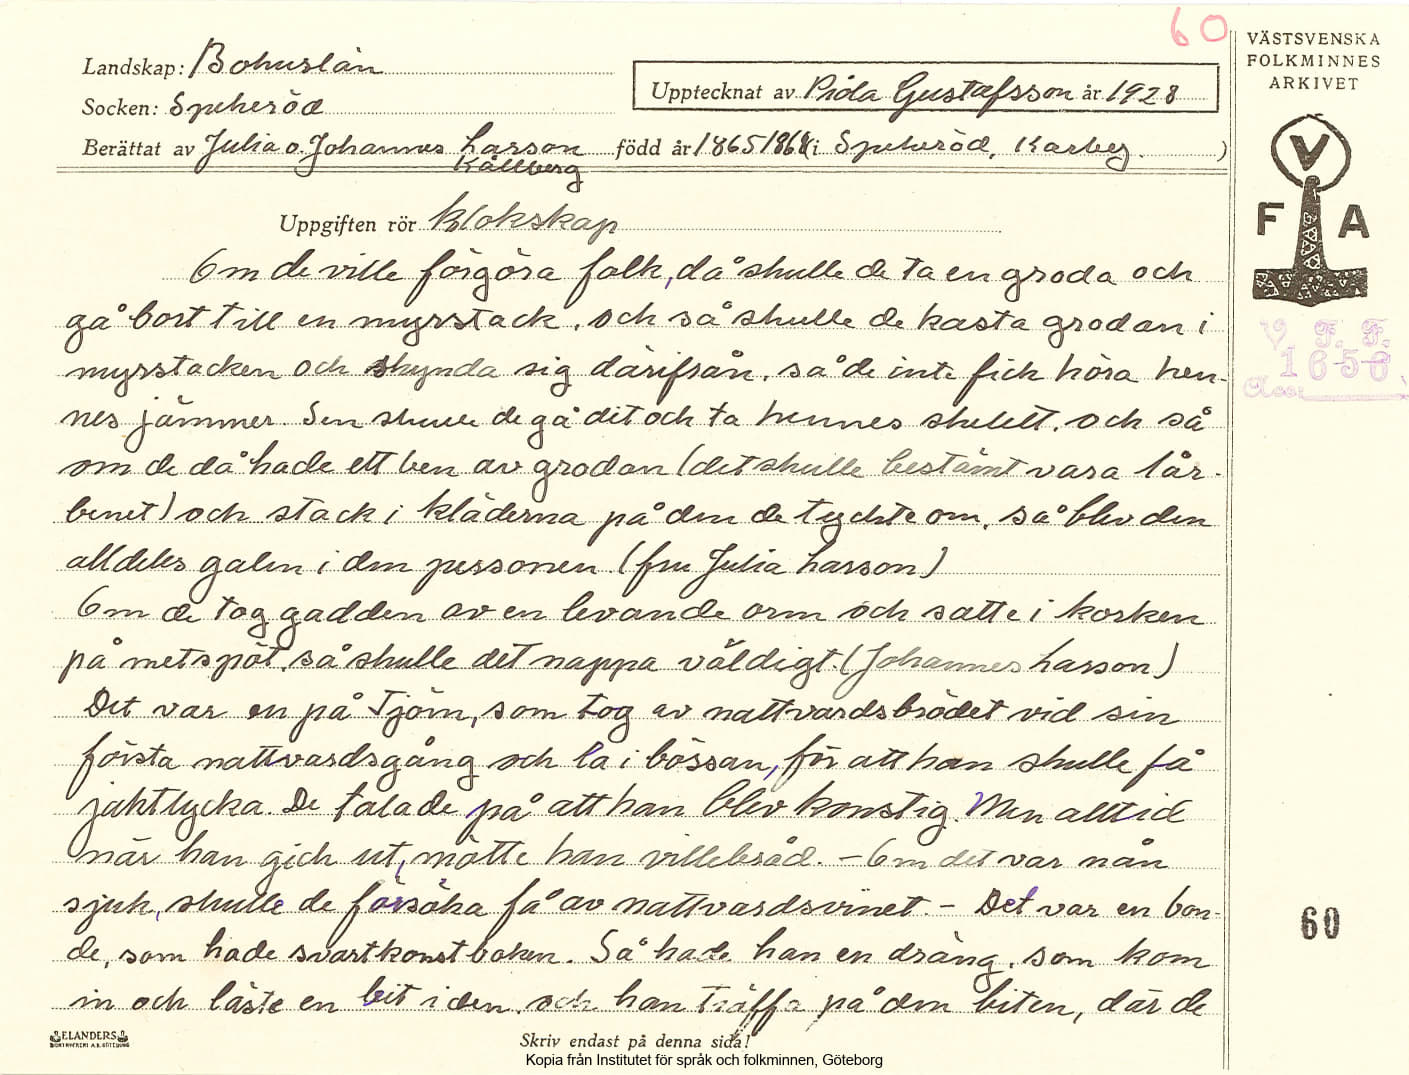 60
Landskap: Bohuslän
Socken: Spekeröd
Upptecknat av Pida Gustafsson år 1928
Berättat av Julia o. Johannes Larsson född år 1865 1868 (i Spekeröd, Karbeg. )
Kållberg
Uppgiften rör Klokskap
Om de ville förgöra folk, då skulle de ta en groda och
gå bort till en myrstack, och så skulle de kasta grodan i
myrstacken och skynda sig därifrån, så de inte fick höra hen-
nes jämmer. Sen skulle de gå dit och ta hennes skelett, och så
om de då hade ett ben av grodan (det skulle bestämt vara lår-
benet) och stack i kläderna på den de tyckte om, så blev den
alldeles galen i den personen. (fru Julia Larsson)
Om de tog gadden av en levande orm och satte i korken
på metspöt, så skulle det nappa väldigt. (Johannes Larsson)
Det var en på Tjörn, som tog av nattvardsbrödet vid sin
första nattvardsgång och la i bössan, för att han skulle få
jaktlycka. De talade på att han blev konstig. Men alltid
när han gick ut, mötte han villebråd. - Om det var nån
sjuk, skulle de försöka få av nattvardsvinet. - Det var en bon-
de, som hade svartkonstboken. Så hade han en dräng, som kom
in och läste en bit i den, och han träffa på den biten, där de
ELANDERS
BOKTRYCKERI A.B. GÖTEBORG
Skriv endast på denna sida!
Kopia från Institutet för språk och folkminnen, Göteborg
VÄSTSVENSKA
FOLKMINNES
ARKIVET
V
F A
V. F. F.
1656
Acc:
60